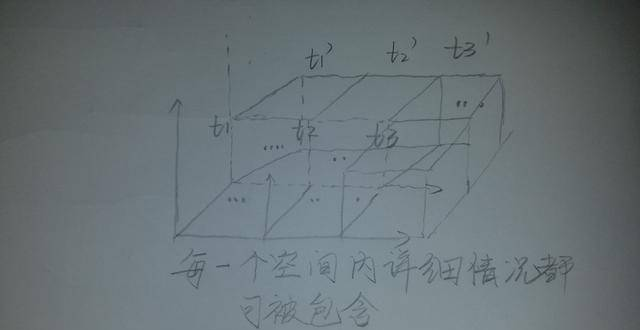 t1' t2' t3'
t1 t2 t3
每一个空间内详细情况都
可被包含